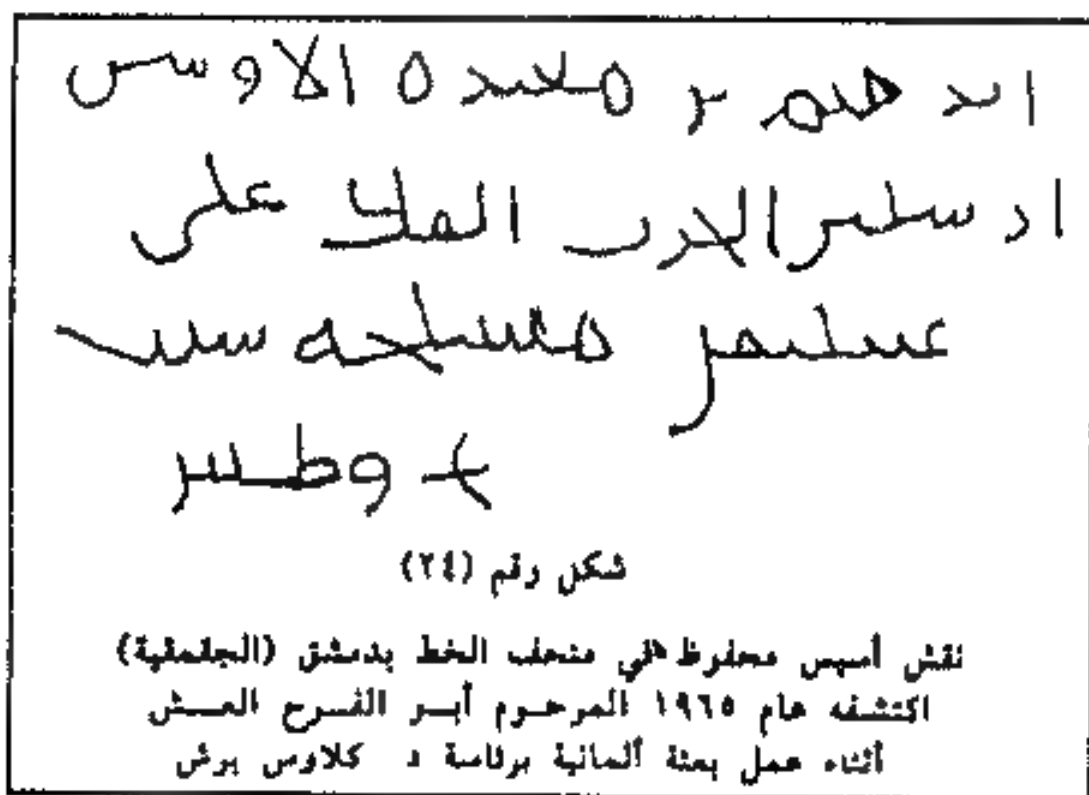 ابرهيم بر مغيره الاوسي
ارسلني الحرث الملك على
مسلحه سنت
شكل رقم (٢٤)
نقش أسيس محفوظ في متحف الخط بدمشق (الجقمقية)
اكتشفه عام ١٩٦٥ المرحوم أبو الفرج العش
أثناء عمل بعثة ألمانية برئاسة د كلاوس برش